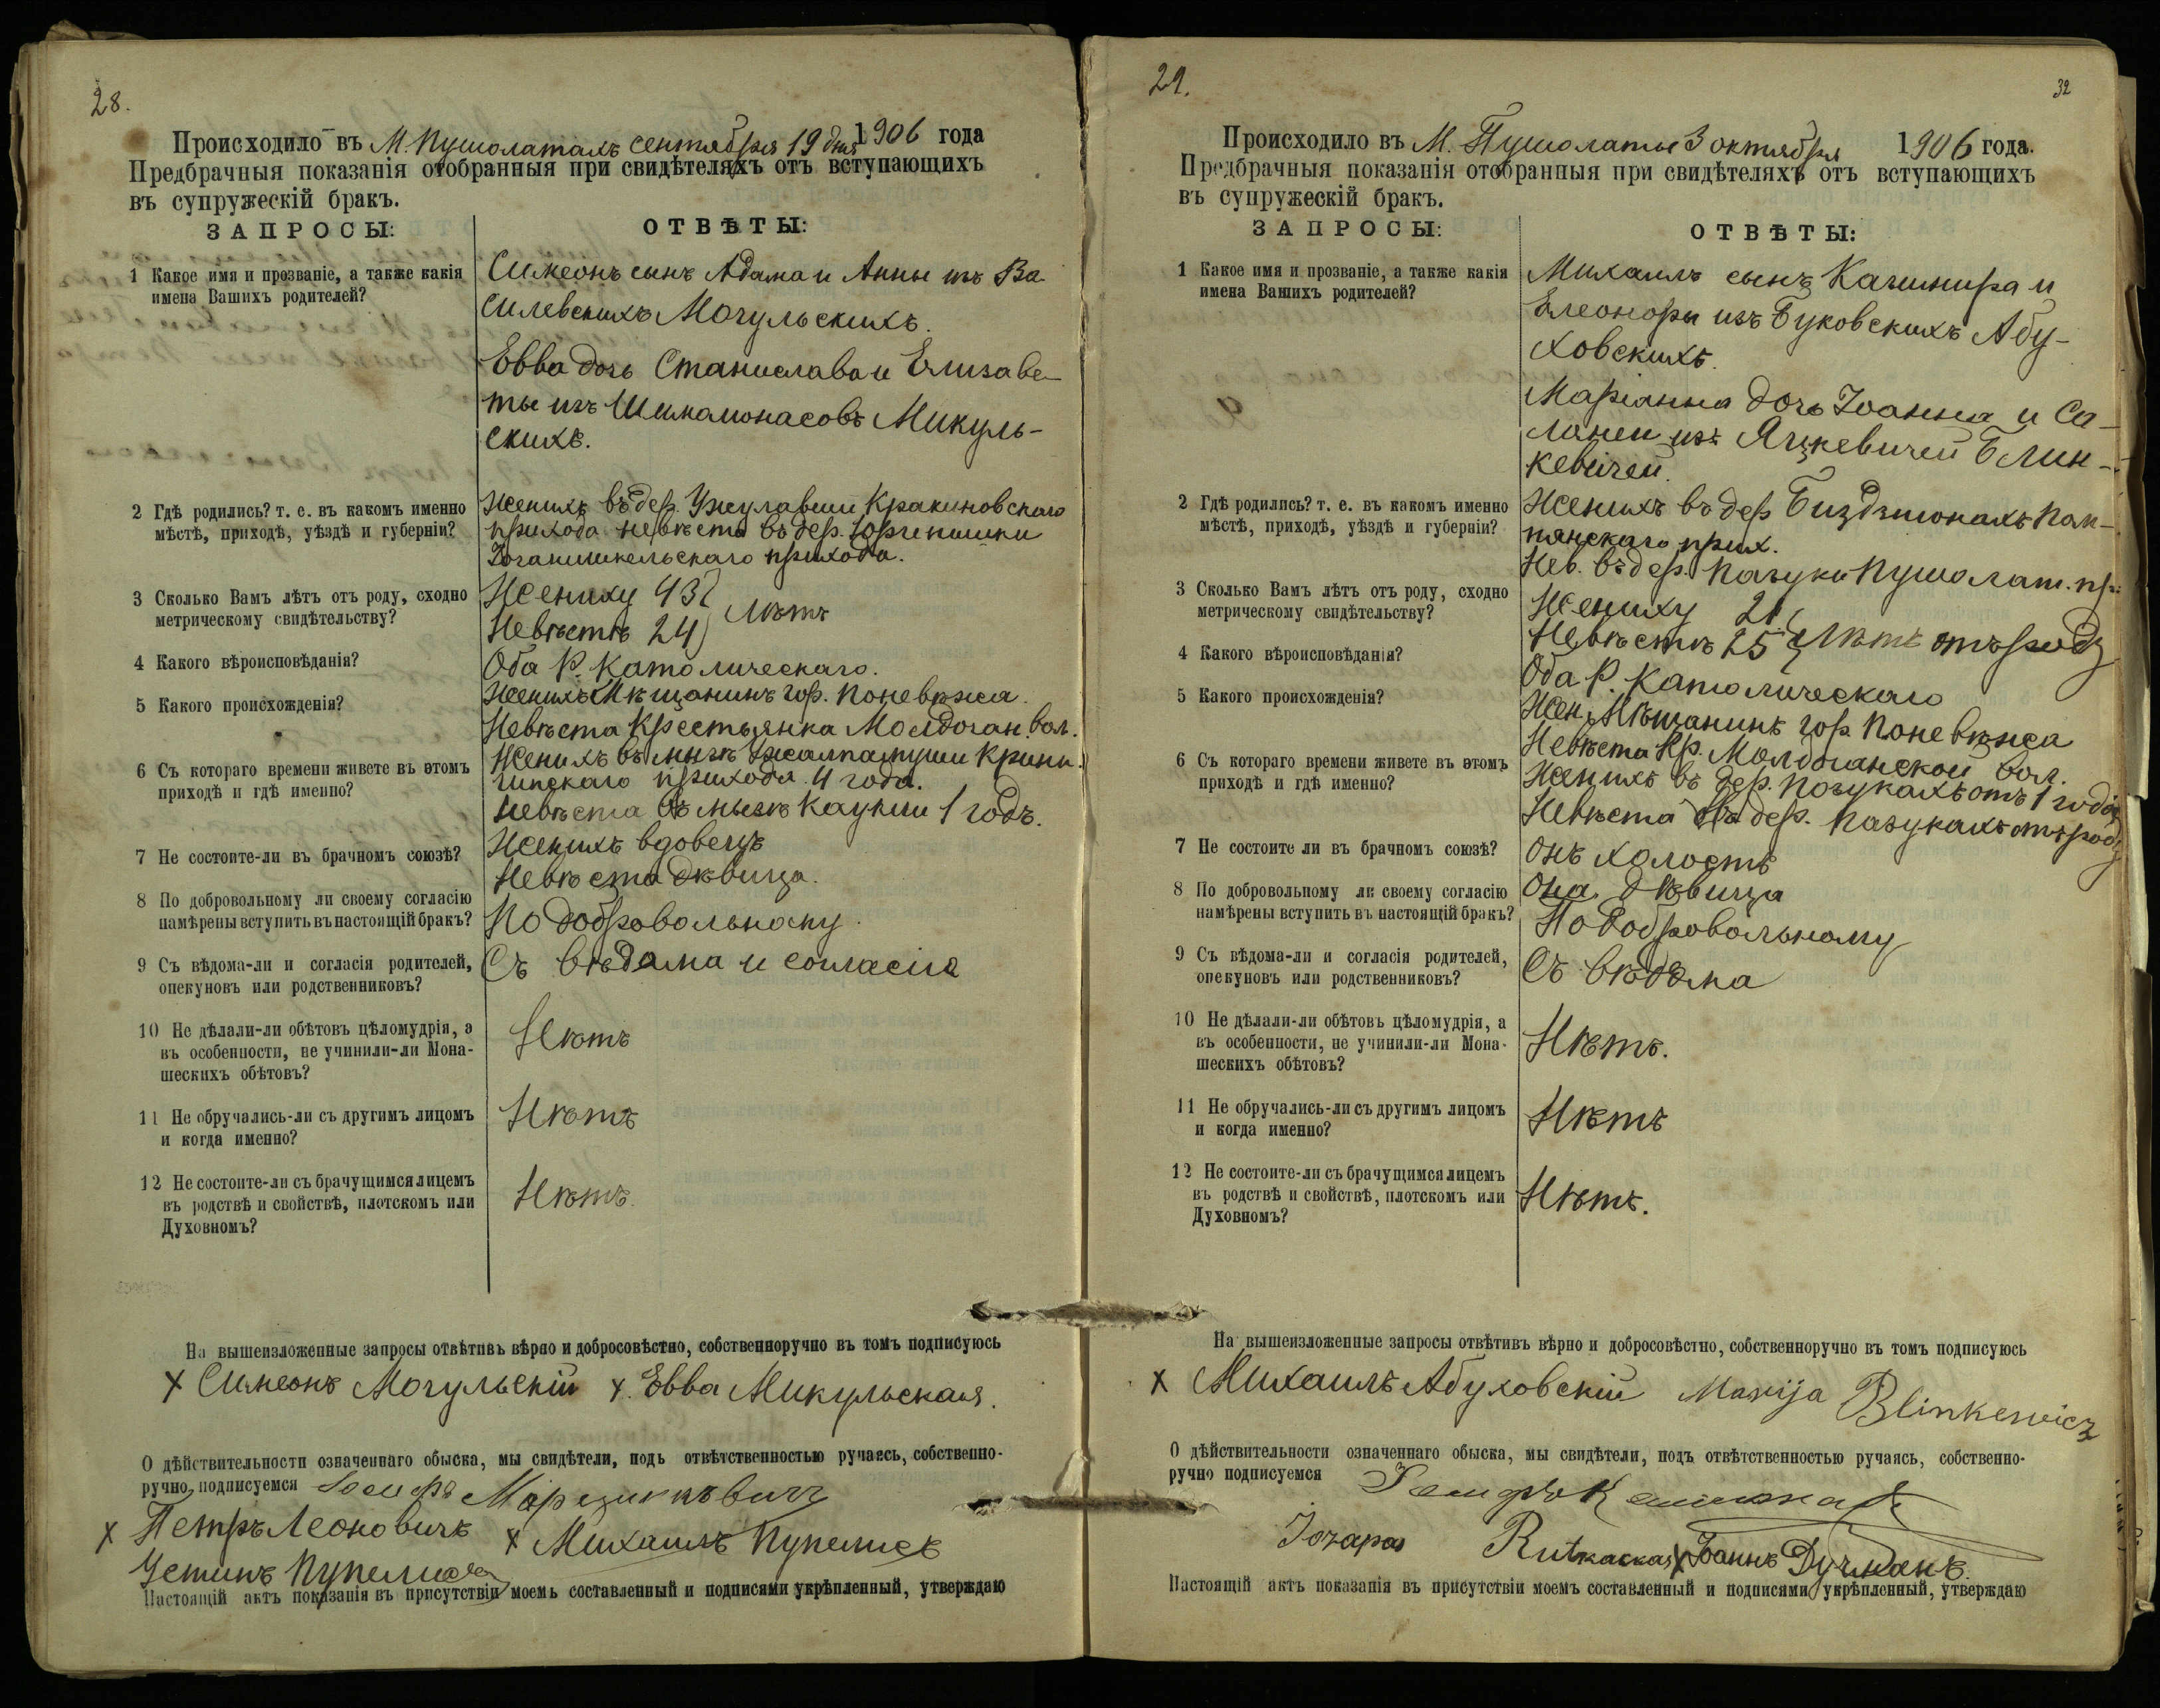 28.
Происходило въ М. Пушолатахъ сентября 19 дня 1906 года
Предбрачныя показанія отобранныя при свидѣтеляхъ отъ вступающихъ
въ супружескій бракъ.
ЗАПРОСЫ:
ОТВѢТЫ:
1 Какое имя и прозваніе, а также какія
имена Вашихъ родителей?
Симеонъ сынъ Адама и Анны изъ Ва-
силевскихъ Могульскихъ.
Евва дочь Станислава и Елизаве-
ты изъ Шимамонасовъ Микуль-
скихъ.
2 Гдѣ родились? т. е. въ какомъ именно
мѣстѣ, приходѣ, уѣздѣ и губерніи?
Женихъ въ дер. Ужулавши Кракиновскаго
прихода невѣста въ дер.
прихода.
3 Сколько Вамъ лѣтъ отъ роду, сходно
метрическому свидѣтельству?
Жениху 43
Невѣстѣ 24 } лѣтъ
4 Какого вѣроисповѣданія?
Оба Р. Католическаго.
5 Какого происхожденія?
Женихъ Мѣщанинъ гор. Поневѣжа.
Невѣста Крестьянка Молдоган. вол.
6 Съ котораго времени живете въ этомъ
приходѣ и гдѣ именно?
Женихъ въ мызѣ
прихода 4 года.
Невѣста въ мызѣ Каукли 1 годъ.
7 Не состоите-ли въ брачномъ союзѣ?
Женихъ вдовецъ
Невѣста дѣвица.
8 По добровольному ли своему согласію
намѣрены вступить въ настоящій бракъ?
По добровольному.
9 Съ вѣдома-ли и согласія родителей,
опекуновъ или родственниковъ?
Съ вѣдома и согласія
10 Не дѣлали-ли обѣтовъ цѣломудрія, а
въ особенности, не учинили-ли Мона-
шескихъ обѣтовъ?
Нѣтъ
11 Не обручались-ли съ другимъ лицомъ
и когда именно?
Нѣтъ
12 Не состоите-ли съ брачущимся лицемъ
въ родствѣ и свойствѣ, плотскомъ или
Духовномъ?
Нѣтъ.
На вышеизложенные запросы отвѣтивъ вѣрно и добросовѣстно, собственноручно въ томъ подписуюсь
х Симеонъ Могульскій х. Евва Микульская.
О дѣйствительности означеннаго обыска, мы свидѣтели, подъ отвѣтственностью ручаясь, собственно-
ручно подписуемся Марцинкѣвичъ
х Петръ Леоновичъ х Михаилъ Пупелисъ
Устинъ
Настоящій актъ показанія въ присутствіи моемъ составленный и подписями укрѣпленный, утверждаю
29.
32
Происходило въ М. Пушолаты 3 октября 1906 года.
Предбрачныя показанія отобранныя при свидѣтеляхъ отъ вступающихъ
въ супружескій бракъ.
ЗАПРОСЫ:
ОТВѢТЫ:
1 Какое имя и прозваніе, а также какія
имена Вашихъ родителей?
Михаилъ сынъ Казимира и
Елеоноры изъ Буковскихъ Абу-
ховскихъ.
Маріанна дочь Іоанна и Са-
ломеи изъ Яцкевичей Блин-
кевичей.
2 Гдѣ родились? т. е. въ какомъ именно
мѣстѣ, приходѣ, уѣздѣ и губерніи?
Женихъ въ дер. Биздзюнахъ Пом-
пянскаго прих.
Нев. въ дер. Пазуки Пушолат. пр.
3 Сколько Вамъ лѣтъ отъ роду, сходно
метрическому свидѣтельству?
Жениху 21
Невѣстѣ 25 } лѣтъ отъ роду
4 Какого вѣроисповѣданія?
Оба Р. Католическаго
5 Какого происхожденія?
Жен. Мѣщанинъ гор. Поневѣжа
Невѣста Кр. Молдоганской вол.
6 Съ котораго времени живете въ этомъ
приходѣ и гдѣ именно?
Женихъ въ дер. Пазукахъ отъ 1 года
Невѣста въ дер. Пазукахъ отъ роду
7 Не состоите ли въ брачномъ союзѣ?
Онъ холостъ
Она дѣвица
8 По добровольному ли своему согласію
намѣрены вступить въ настоящій бракъ?
По добровольному
9 Съ вѣдома-ли и согласія родителей,
опекуновъ или родственниковъ?
Съ вѣдома
10 Не дѣлали-ли обѣтовъ цѣломудрія, а
въ особенности, не учинили-ли Мона-
шескихъ обѣтовъ?
Нѣтъ.
11 Не обручались-ли съ другимъ лицомъ
и когда именно?
Нѣтъ
12 Не состоите-ли съ брачущимся лицемъ
въ родствѣ и свойствѣ, плотскомъ или
Духовномъ?
Нѣтъ.
На вышеизложенные запросы отвѣтивъ вѣрно и добросовѣстно, собственноручно въ томъ подписуюсь
х Михаилъ Абуховскій Marija Blinkewicz
О дѣйствительности означеннаго обыска, мы свидѣтели, подъ отвѣтственностью ручаясь, собственно-
ручно подписуемся
х Іоаннъ Дучманъ.
Настоящій актъ показанія въ присутствіи моемъ составленный и подписями укрѣпленный, утверждаю